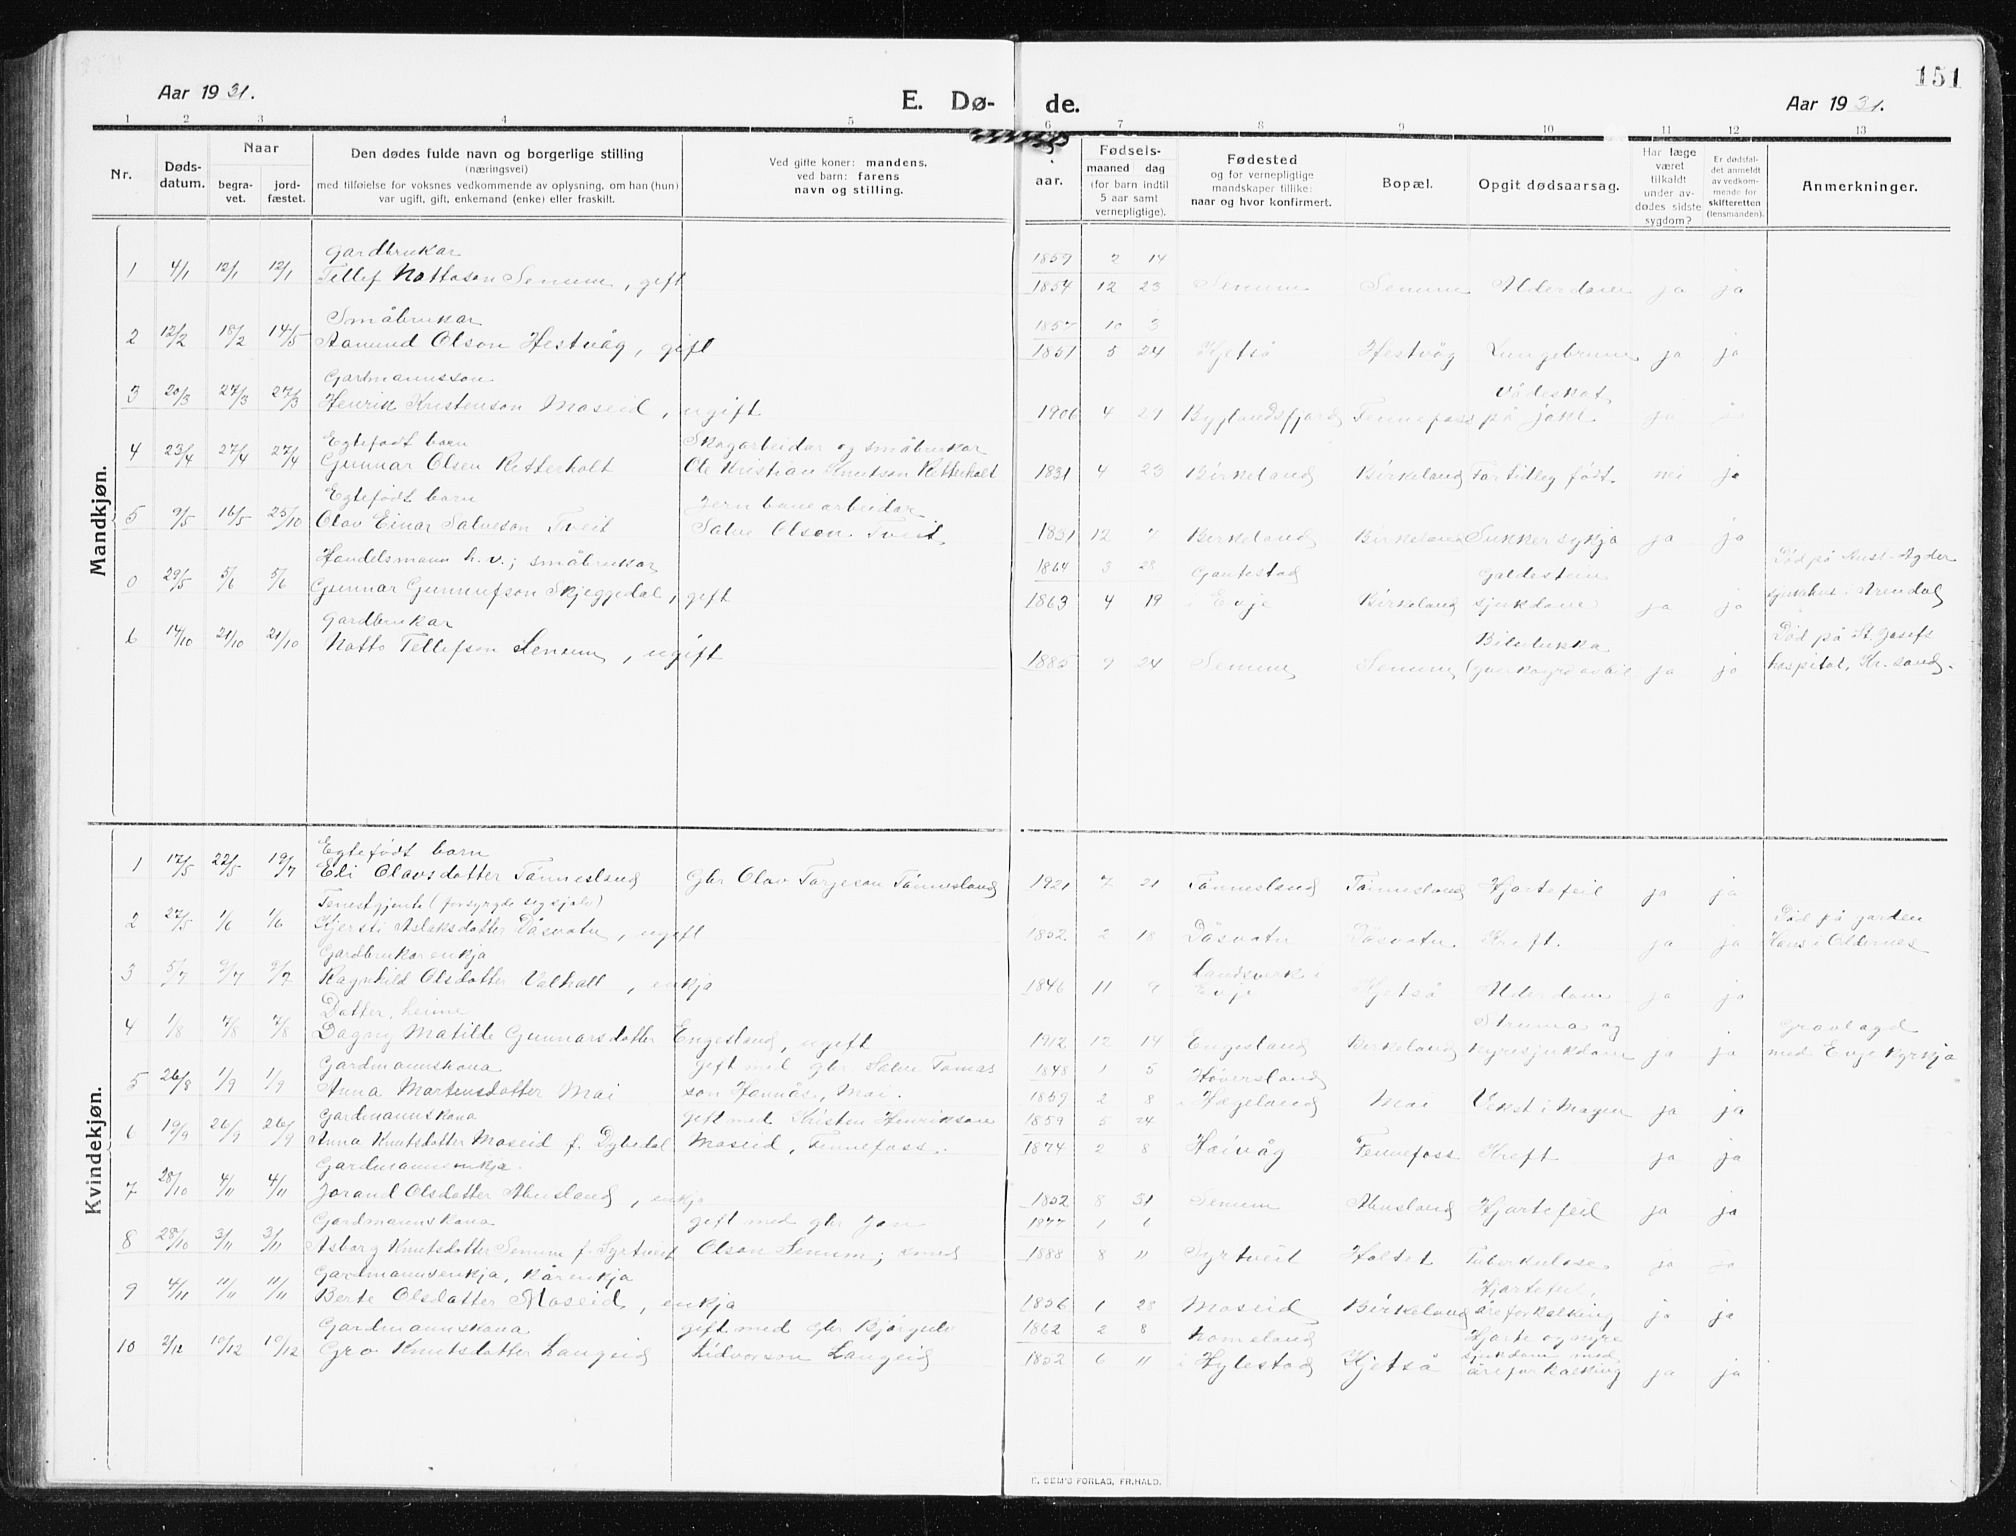 151
Aar 1931.
E. Dø- de.
Aar 1931.
1 2 3 4 5 6 7 8 9 10 11 12 13
Nr.
Døds-datum.
Naar
begra-vet.
jord-fæstet.
Den dødes fulde navn og borgerlige stilling
(næringsvei)
med tilføielse for voksnes vedkommende av oplysning, om han (hun)
var ugift, gift, enkemand (enke) eller fraskilt.
Ved gifte koner: mandens.
ved barn: farens
navn og stilling.
aar.
Fødsels-
maaned dag
(for barn indtil
5 aar samt
vernepligtige).
Fødested
og for vernepligtige
mandskaper tillike:
naar og hvor konfirmert.
Bopæl.
Opgit dødsaarsag.
Har læge
været
tilkaldt
under av-
dødes sidste
sygdom?
Er dødsfal-
det anmeldt
av vedkom-
mende for
skifteretten
(lensmanden).
Anmerkninger.
Mandkjøn.
Gardbrukar 1859 2 14
1 4/1 12/1 12/1 Tellef Nottoson Senum, gift 1854 12 23 Senum Senum Alderdom ja ja
Småbrukar 1857 10 3
2 12/2 18/2 14/5 Aamund Olson Hestvåg, gift 1851 5 24 Kjetså Hestvåg Lungebrune ja ja
Gardmannsson Vådeskot
3 20/3 27/3 27/3 Henrik Kristenson Moseid, ugift 1906 4 21 Byglandsfjord Fennefoss på jakt ja ja
Egtefødt barn Skogarbeidar og småbrukar
4 23/4 27/4 27/4 Gunnar Olsen Retterholt Ole Kristian Knutson Retterholt 1931 4 23 Birkeland Birkeland For tidleg født. nei ja
Egtefødt barn Jernbanearbeidar
5 9/5 16/5 25/10 Olav Einar Salveson Tveit Salve Olson Tveit 1931 12 7 Birkeland Birkeland Sukkersykja ja ja
Handelsmann h. v.; småbrukar 1864 3 28 Gautestad Galdestein Død på Aust-Agder
0 29/5 5/6 5/6 Gunnar Gunnufson Skjeggedal, gift 1863 4 19 i Evje Birkeland sjukdom ja ja sjukehus i Arendal
Gardbrukar Bilulukka Død på St. Josefs
6 14/10 21/10 21/10 Notto Tellefson Senum, ugift 1885 9 24 Senum Senum ja ja hospital, Kr.sand.
Kvindekjøn.
Egtefødt barn
1 17/5 22/5 19/7 Eli Olavsdotter Tønnesland Gbr Olav Torjeson Tønnesland 1921 7 21 Tønnesland Tønnesland Hjartefeil ja ja
Tenestgjente (forsyrgde seg sjølv) Død på garden
2 27/5 1/6 1/6 Kjersti Aslaksdotter Dåsvatn, ugift 1852 2 18 Dåsvatn Dåsvatn Kreft. ja ja
Gardbrukarenkja Landsverk i
3 5/7 9/7 9/7 Ragnhild Olsdotter Valhall, enkja 1846 11 9 Evje Kjetså Alderdom ja ja
Dotter, heime Struma og Gravlagd
4 1/8 7/8 7/8 Dagny Matilde Gunnarsdotter Engesland, ugift 1912 12 14 Engesland Birkeland nyresjukdom ja ja med Evje kyrkja
Gardmannskona gift med gbr. Salve Tomas 1848 1 5 Høversland
5 26/8 1/9 1/9 Anna Martensdotter Moi son Honnås, Moi. 1859 2 8 i Hægeland Moi Vekst i magen ja ja
Gardmannskona gift med Kristen Henrikson 1859 5 24
6 19/9 26/9 26/9 Anna Knutsdotter Moseid f. Dybedal Moseid, Fennefoss. 1874 2 8 Høivåg Fennefoss Kreft ja ja
Gardmannsenkja.
7 28/10 4/11 4/11 Jorand Olsdotter Abusland, enkja 1852 8 31 Senum Abusland Hjartefeil ja ja
Gardmannskona gift med gbr Jon 1877 1 6
8 28/10 3/11 3/11 Asborg Knutsdotter Senum f. Syrtveit Olson Senum; 1888 8 11 Syrtveit Holtet Tuberkulose. ja ja
Gardmannsenkja, kårenkja Hjartefeil,
9 4/11 11/11 11/11 Berte Olsdotter Moseid, enkja 1856 1 28 Moseid Birkeland åreforkalking ja ja
Gardmannskona gift med gbr Bjørgulv 1862 2 8 Homsland Hjarte og nyre
10 3/12 10/12 10/12 Gro Knutsdotter Langeid Lidvorson Langeid 1852 6 11 i Hylestad Kjetså sjukdom med
åreforkalking ja ja
E. SEM'S FORLAG, FR.HALD.